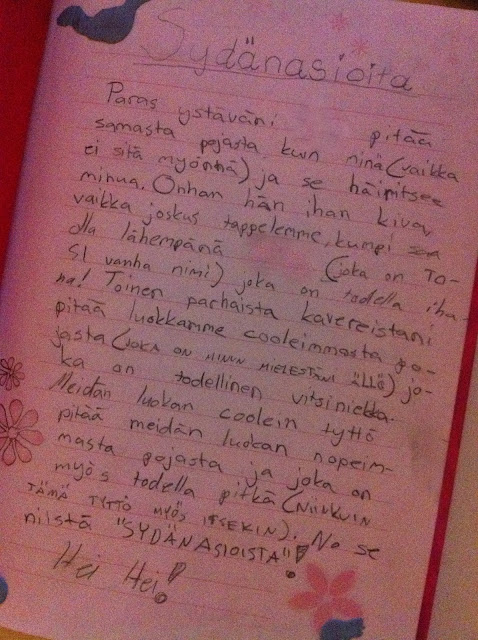 Sydänasioita
Paras ystäväni pitää
samasta pojasta kuin minä (vaikka
ei sitä myönnä) ja se häiritsee
minua. Onhan hän ihan kiva,
vaikka joskus tappelemme, kumpi saa
olla lähempänä (joka on to-
si vanha nimi) joka on todella iha-
na! Toinen parhaista kavereistani
pitää luokkamme cooleimmasta po-
jasta (JOKA ON MINUN MIELESTÄNI ÄLLÖ) jo-
ka on todellinen vitsiniekka.
Meidän luokan coolein tyttö
pitää meidän luokan nopeim-
masta pojasta ja joka on
myös todella pitkä (NIINKUIN
TÄMÄ TYTTÖ MYÖS ITSEKIN). No se
niistä "SYDÄNASIOISTA"!
Hei Hei!